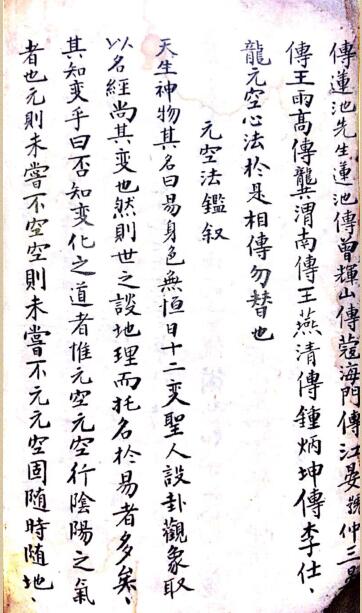 傳蓮池先生蓮池傳曾輝山傳蔻海門傳江晏號仲三
傳王雨高傳龔渭南傳王燕清傳鍾炳坤傳李仕、
龍元空心法於是相傳勿替也
元空法鑑叙
天生神物其名曰易身色無恒日十二変聖人設卦觀象取
以名經尚其変也然則世之談地理而托名於易者多矣、
其知变乎曰否知变化之道者惟元空元空行陰陽之氣
者也元則未嘗不空空則未嘗不元元空固随時随地、